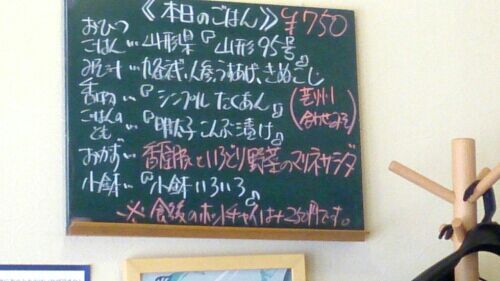 《本日のごはん》 ¥750
おひつ
ごはん… 山形県『山形95号』
みそ汁… 人参、うすあげ、きぬこし
香物…『シンプルたくあん』
(芸州 合わせみそ)
ごはんの
とも…『明太子こんぶ漬け』
おかず… といろどり野菜のマリネサラダ
小鉢…『小鉢いろいろ』
※食後のホットチャイは+250円です。